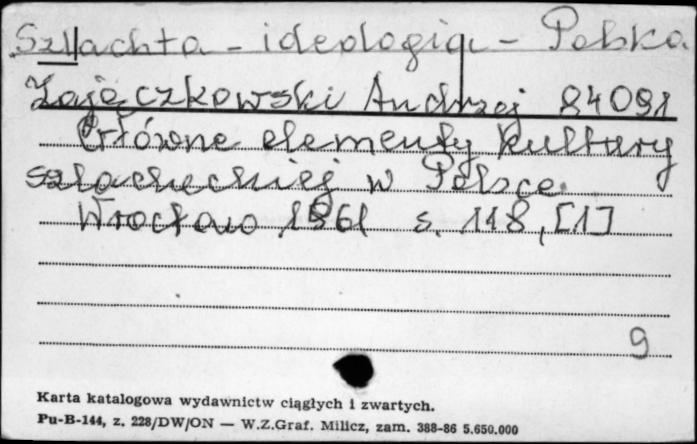 Szlachta - ideologia - Polska
Zajączkowski Andrzej 84091
Główne elementy kultury
szlacheckiej w Polsce.
Wrocław 1961 s. 118, [1]
9
Karta katalogowa wydawnictw ciągłych i zwartych.
Pu-B-144, z. 228/DW/ON — W.Z.Graf. Milicz, zam. 388-86 5.650.000